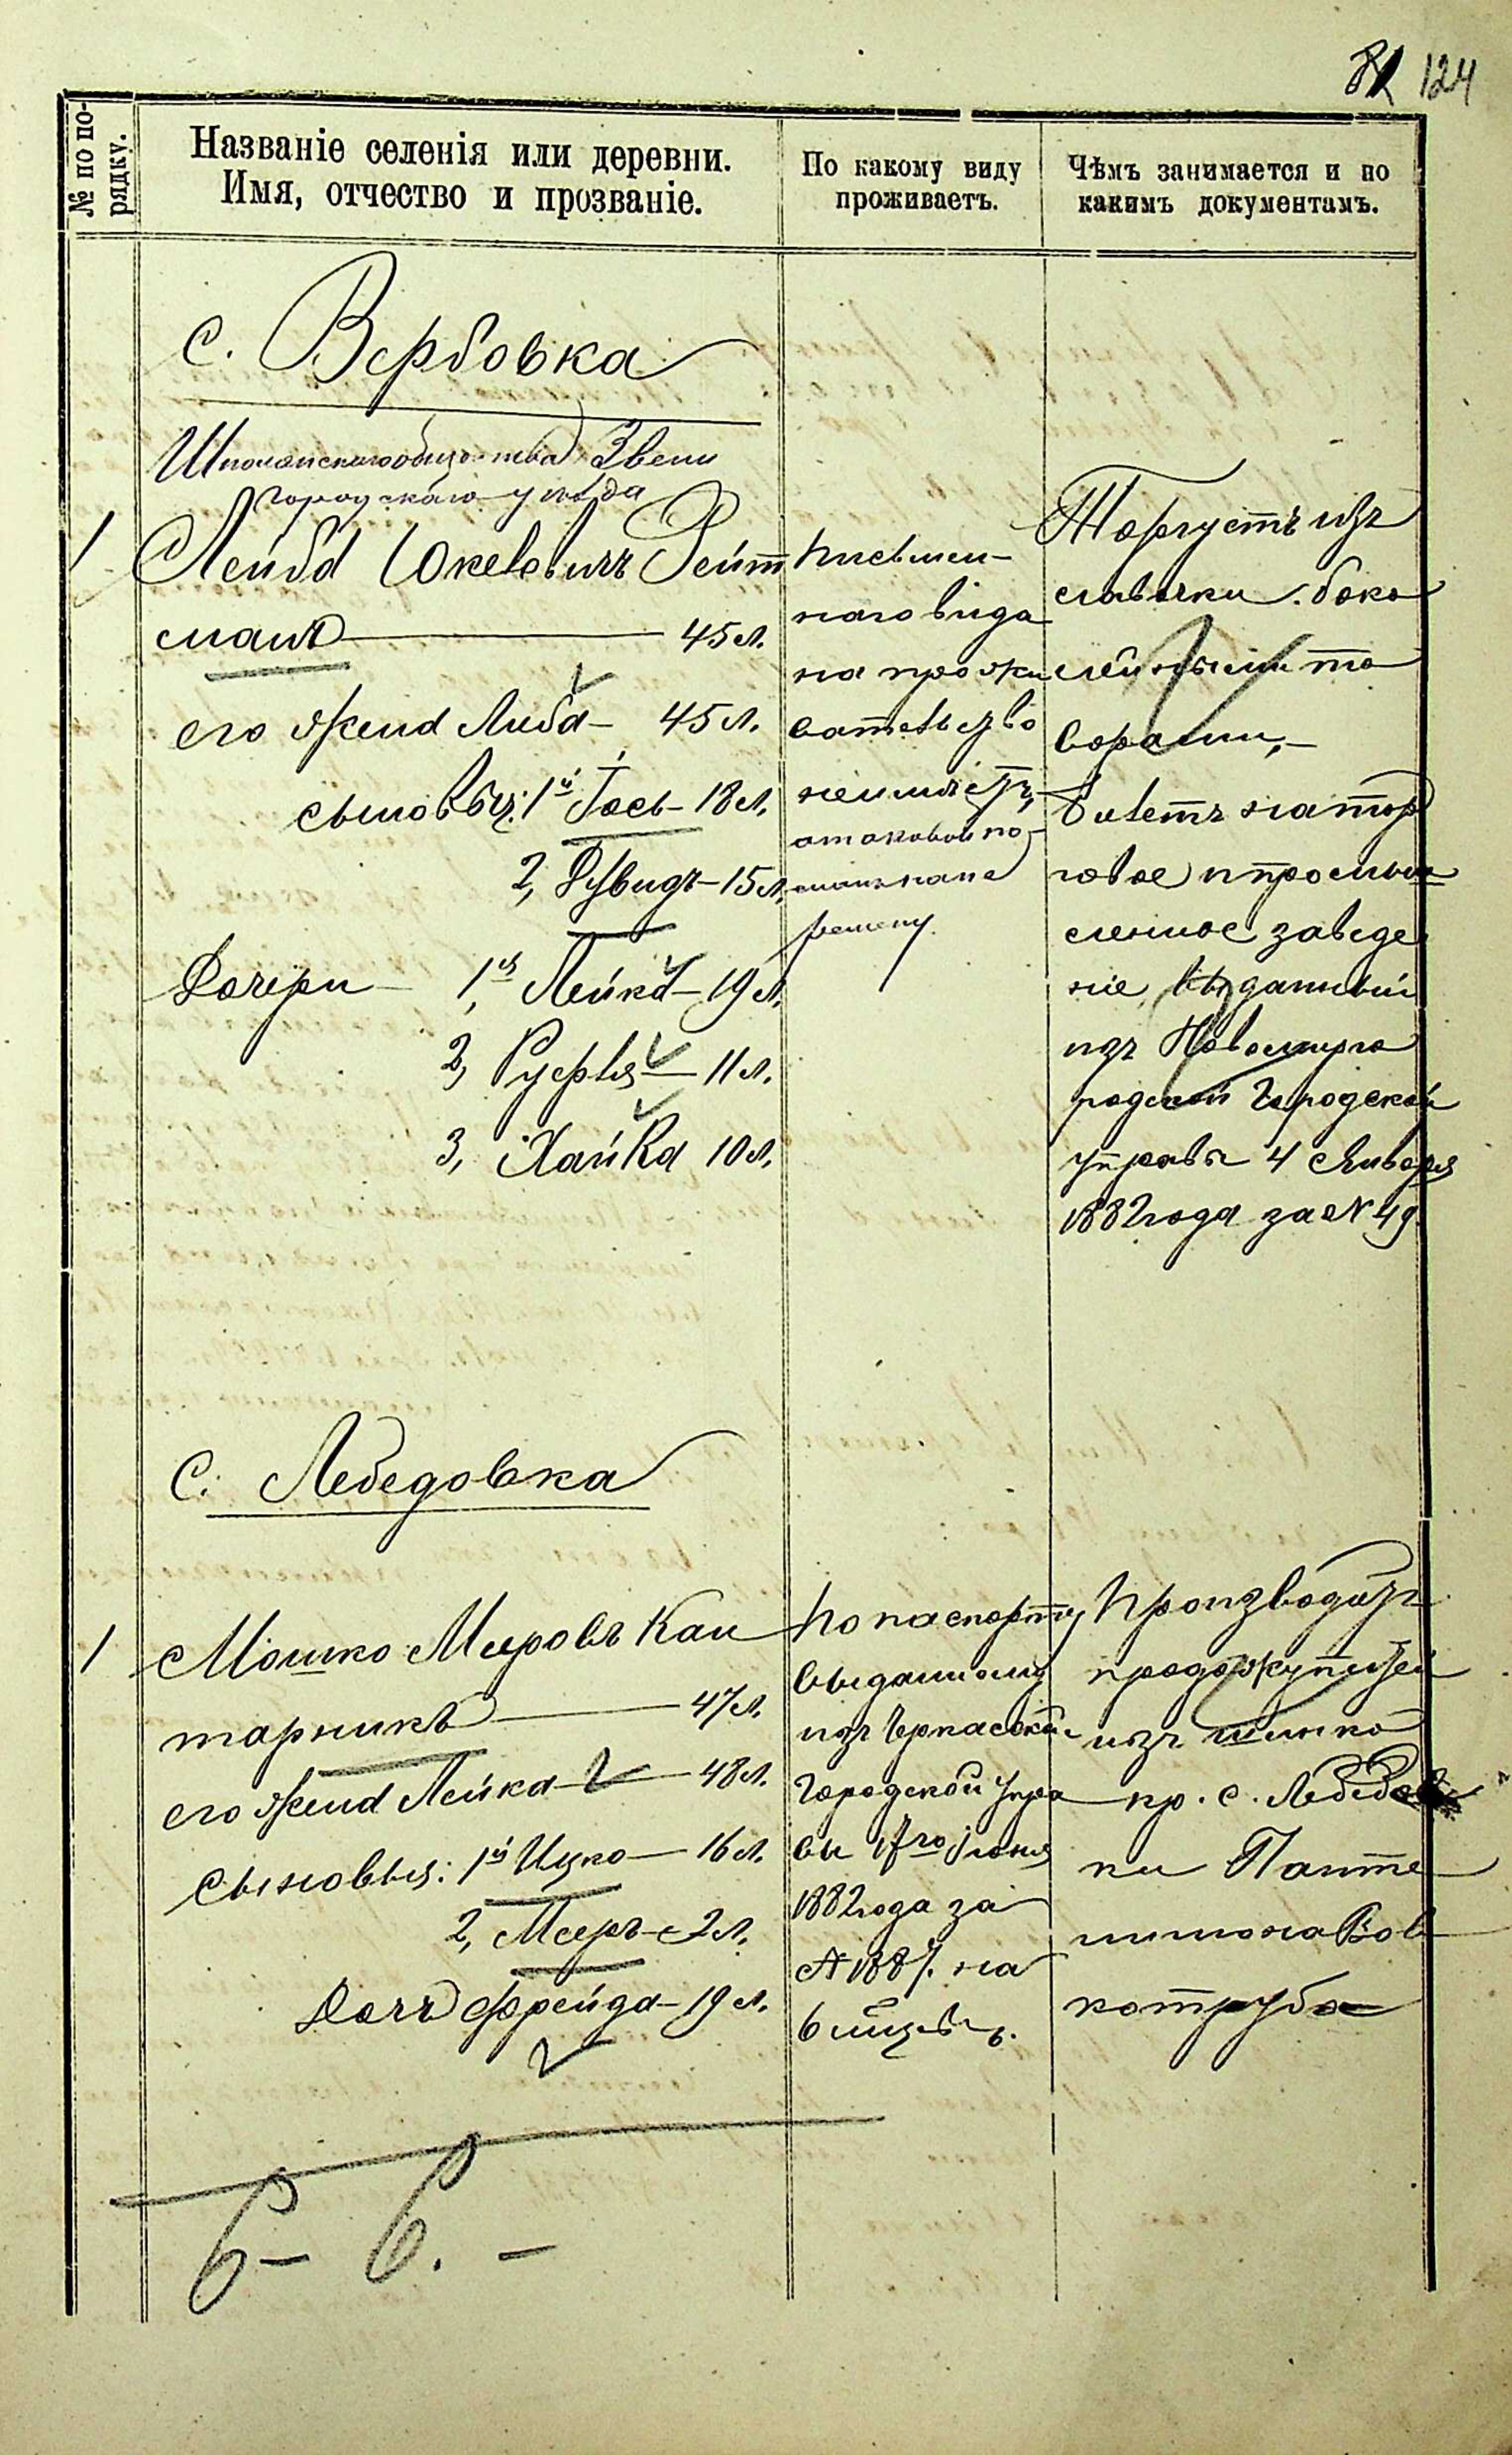 124
№ по по-
рядку.
Названіе селенія или деревни.
Имя, отчество и прозваніе.
По какому виду
проживаетъ.
Чѣмъ занимается и по
какимъ документамъ.
с. Вербовка
Шполянскаго общества Звени
городскаго уѣзда
1
Лейба Іокелевичъ Рейт
манъ 45 л.
его жена Либа – 45 л.
сыновья: 1й Іось – 18 л.
2, Рувидъ – 15 л.
Дочери – 1я, Лейка – 19 л.
2, Рухля – 11 л.
3, Хайка 10 л.
Письмен-
наго вида
на прожи
вательство
неимѣетъ,
Торгуетъ изъ
лавочки бака
лейными то
варами, –
билетъ на тор
говое и промыш
ленное заведе
ніе, выданный
изъ Новомирго
родской Городской
управы 4 Января
1882 года за № 49.
С. Лебедовка
1
Мошко Мееровъ Кан
тарникъ 47 л.
его жена Лейка – 48 л.
сыновья: 1й Ицко – 16 л.
2, Мееръ – 2 л.
Дочь Фрейда – 19 л.
По паспорту
выданному
изъ Черкаской
Городской Упра
вы 17го Іюня
1882 года за
№ 1887. на
6 мѣсяцевъ.
Производитъ
продажу питей
изъ шинка
кр. с. Лебедов
ки Панте
лимона Вов
котруба
6 – 6. –